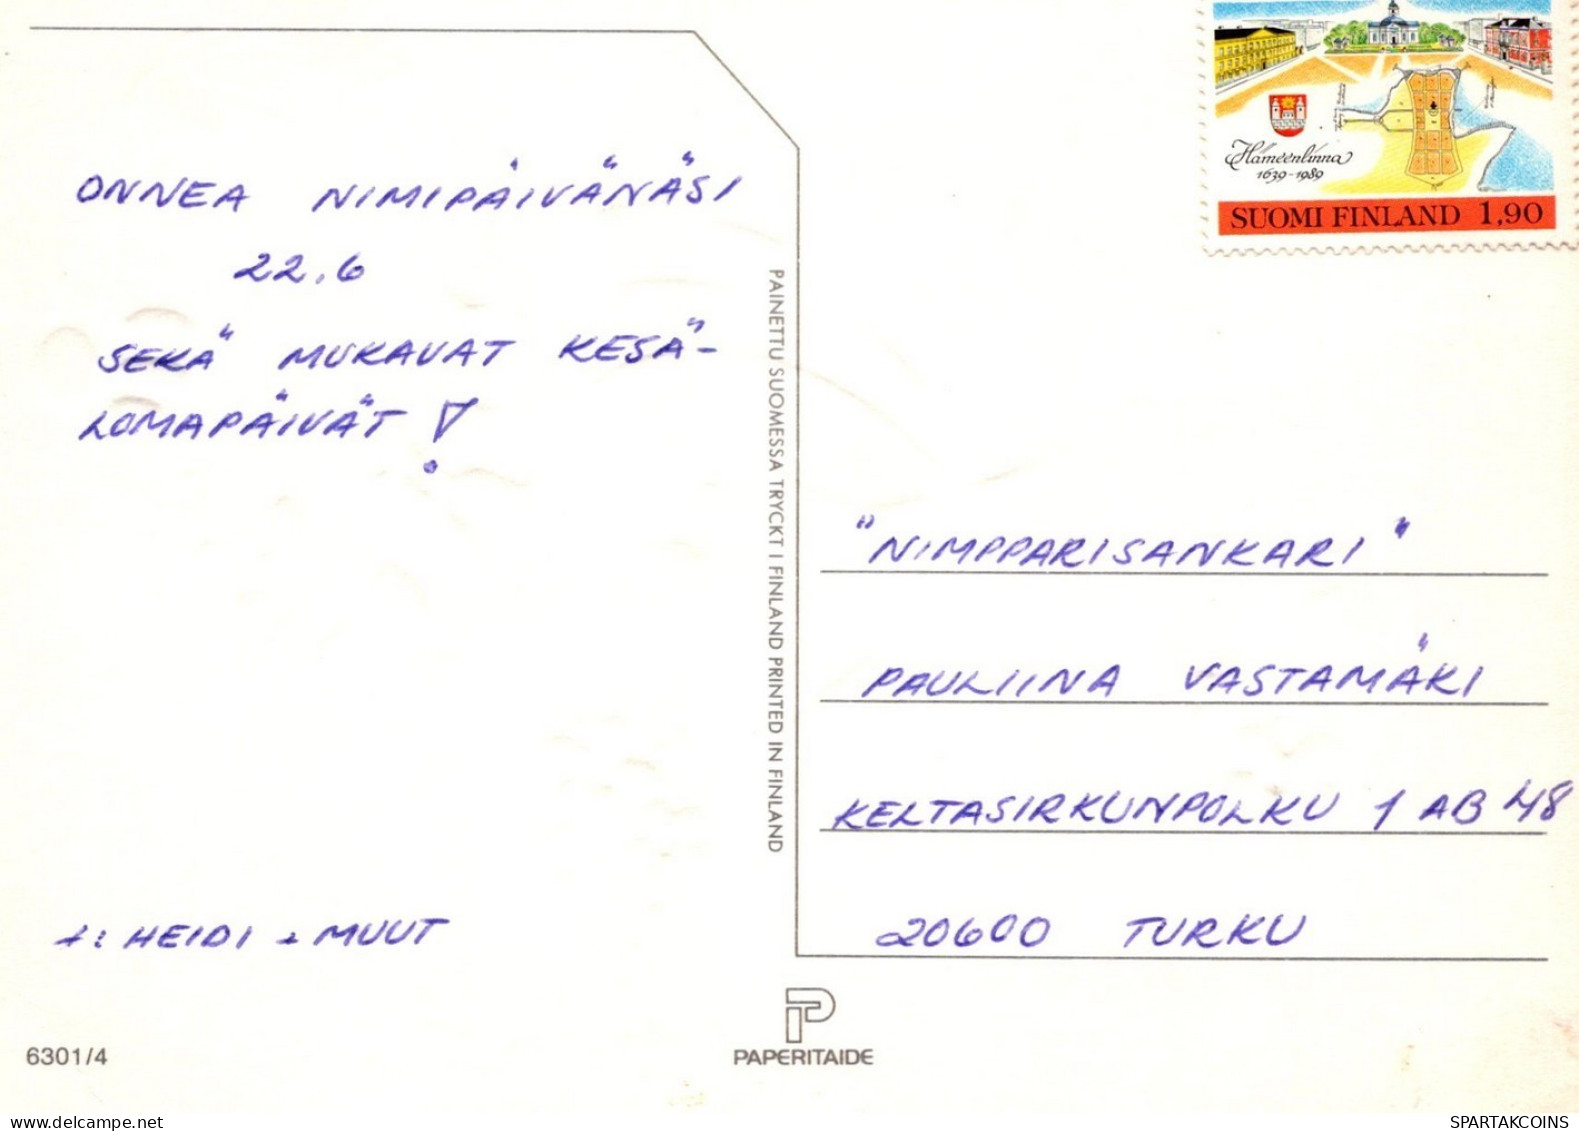 ONNEA NIMIPÄIVÄNÄSI
22.6
SEKÄ MUKAVAT KESÄ-
LOMAPÄIVÄT!
T: HEIDI + MUUT
6301/4
PAINETTU SUOMESSA TRYCKT I FINLAND PRINTED IN FINLAND
PAPERITAIDE
Hämeenlinna
1639-1989
SUOMI FINLAND 1,90
"NIMPPARISANKARI"
PAULIINA VASTAMÄKI
KELTASIRKUNPOLKU 1 AB 48
20600 TURKU
www.delcampe.net
SPARTAKCOINS